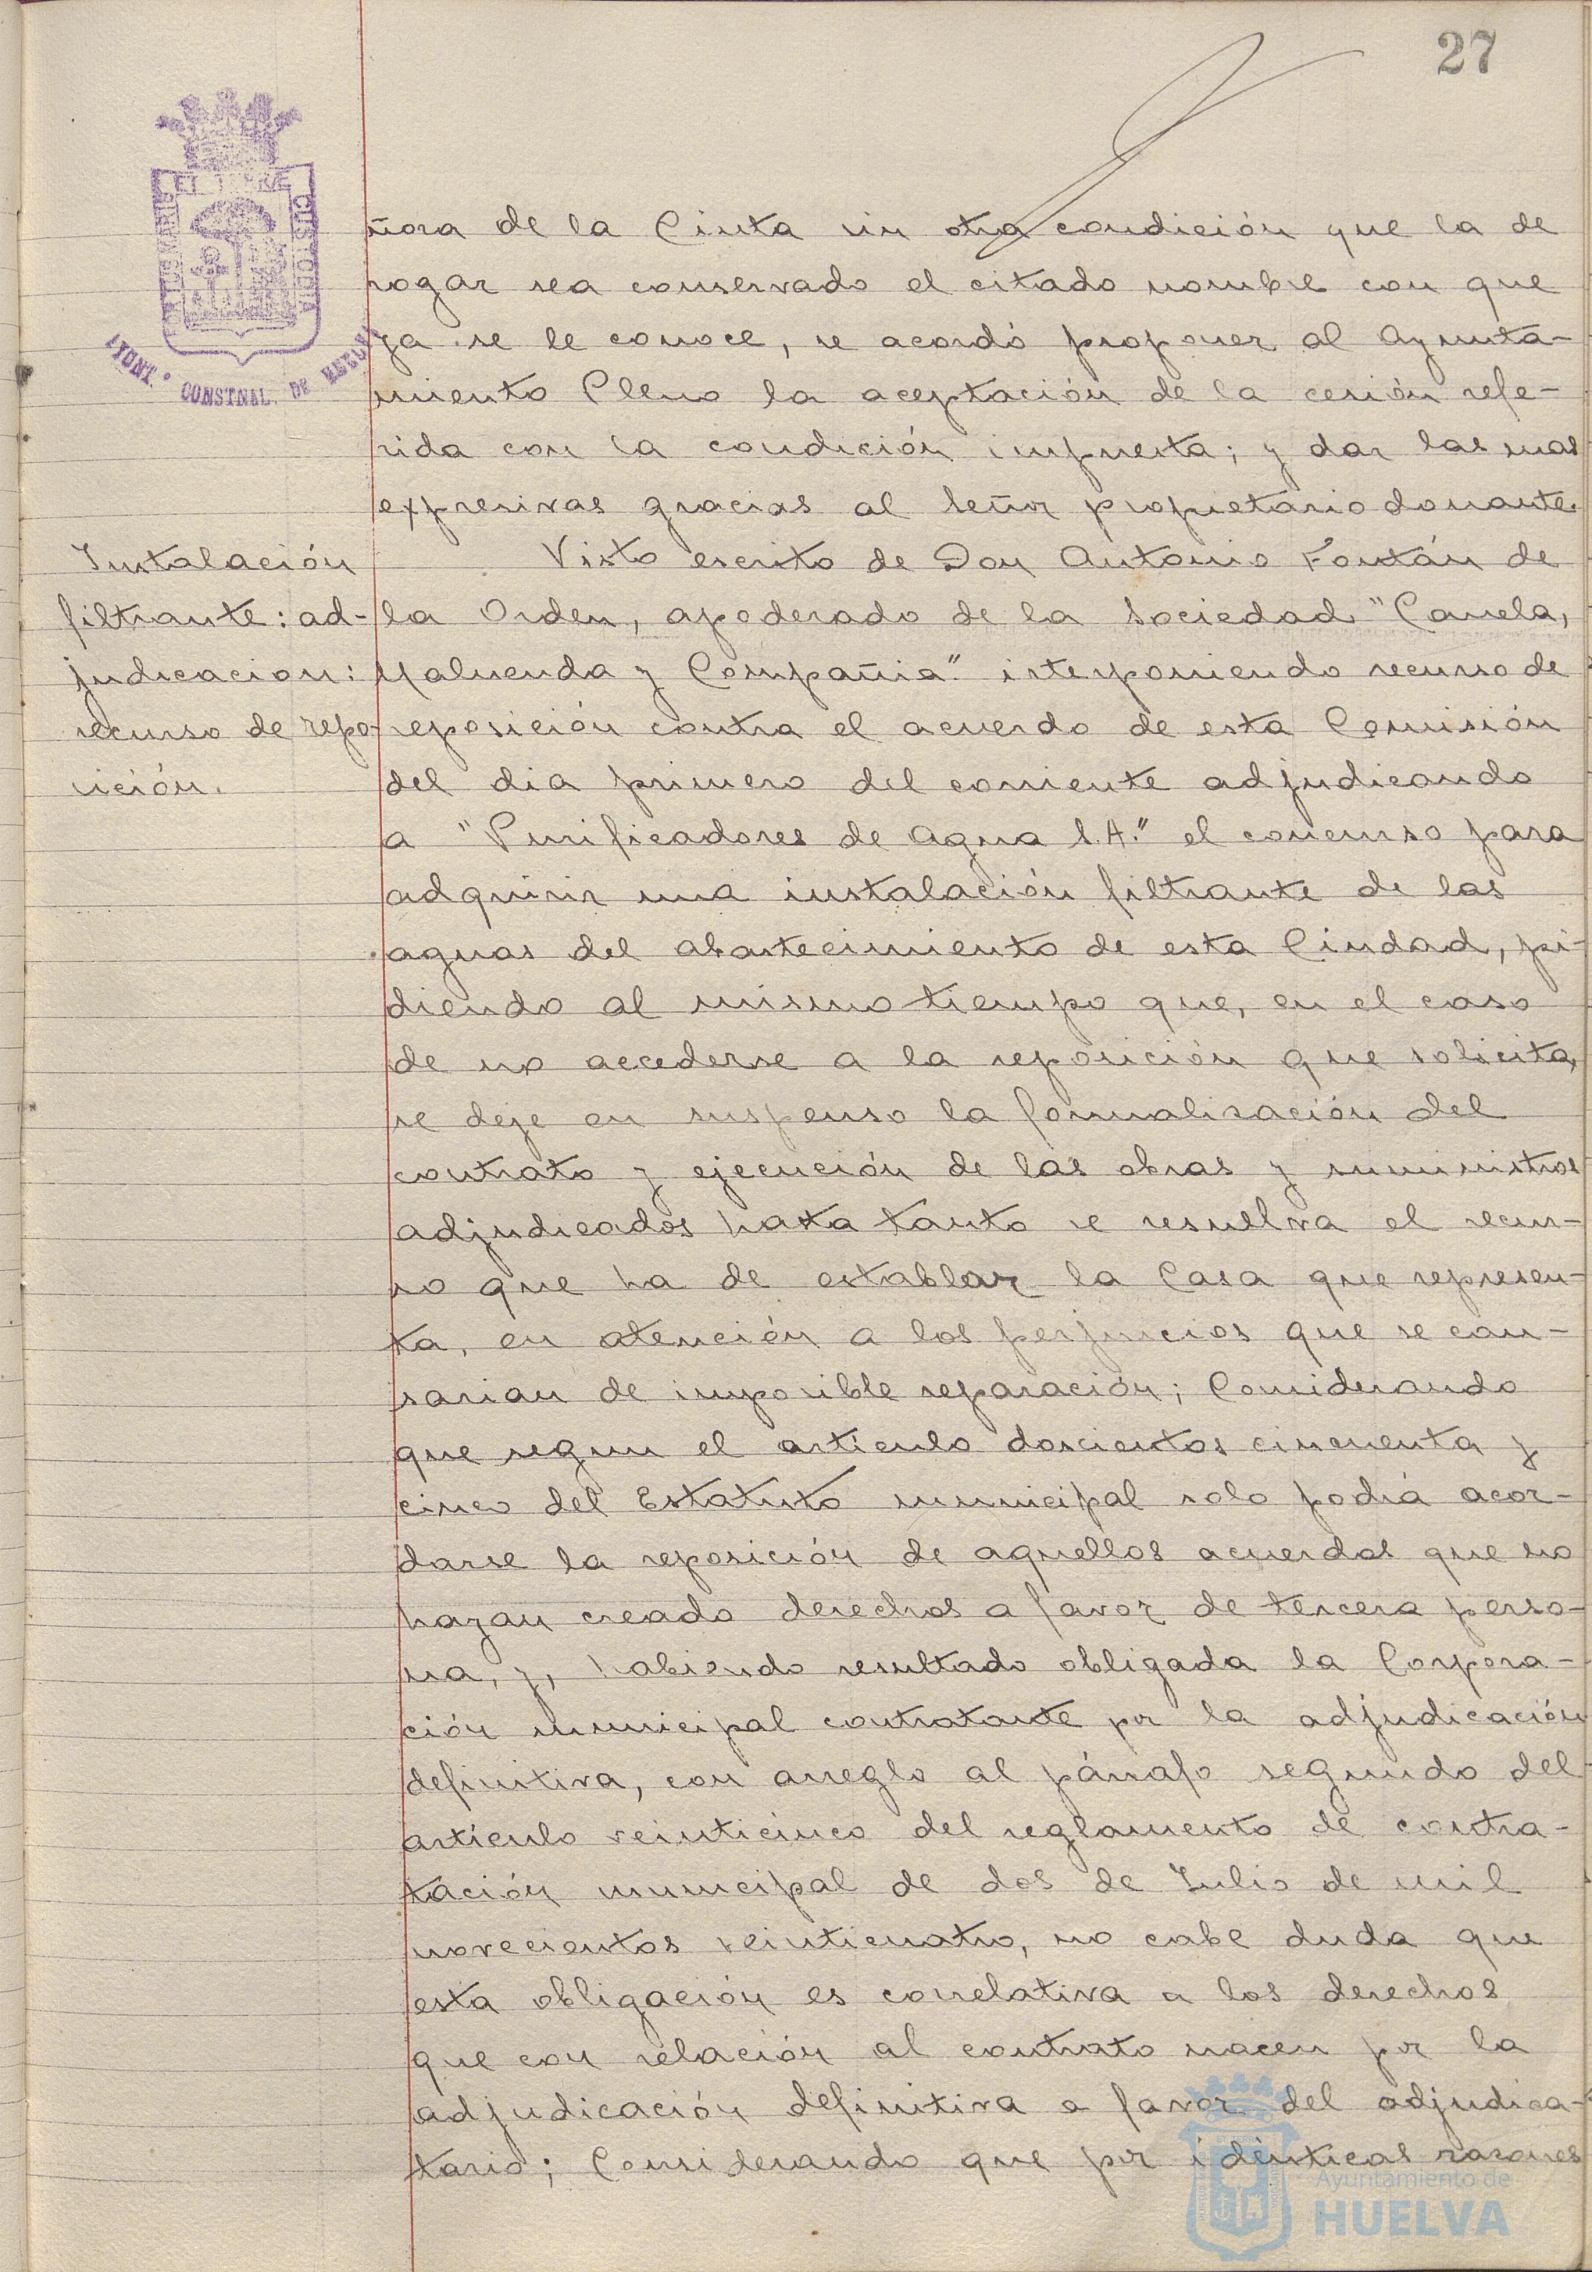 27
ñora de la Cinta sin otra condición que la de
rogar sea conservado el citado nombre con que
ya se le conoce, se acordó proponer al Ayunta-
miento Pleno la aceptación de la cesión refe-
rida con la condición impuesta; y dar las mas
expresivas gracias al Señor propietario donante.
Instalación
filtrante: ad-
judicacion:
recurso de repo-
sición.
Visto escrito de Don Antonio Fontán de
la Orden, apoderado de la Sociedad "Canela,
Maluenda y Compañia." isterponiendo recurso de
reposición contra el acuerdo de esta Comisión
del dia primero del corriente adjudicando
a "Purificadores de Agua S.A." el concurso para
adquirir una instalación filtrante de las
aguas del abastecimiento de esta Ciudad, pi-
diendo al mismo tiempo que, en el caso
de no accederse a la reposición que solicita,
se deje en suspenso la formalisación del
contrato y ejecución de las obras y suministros
adjudicados hasta tanto se resuelva el recur-
so que ha de establar la Casa que represen-
ta, en atención a los perjuicios que se cau-
sarian de imposible reparación; Considerando
que segun el articulo doscientos cincuenta y
cinco del Estatuto municipal solo podrá acor-
darse la reposición de aquellos acuerdos que no
hayan creado derechos a favor de tercera perso-
na, y, habiendo resultado obligada la Corpora-
ción municipal contratante por la adjudicación
definitiva, con arreglo al párrafo segundo del
artículo veinticinco del reglamento de contra-
tación municipal de dos de Julio de mil
novecientos veinticuatro, no cabe duda que
esta obligación es correlativa a los derechos
que con relación al contrato nacen por la
adjudicación definitiva a favor del adjudica-
tario; Considerando que por idénticas razones
AYONT. CONSTNAL. DE HUELVA
Ayuntamiento de
HUELVA